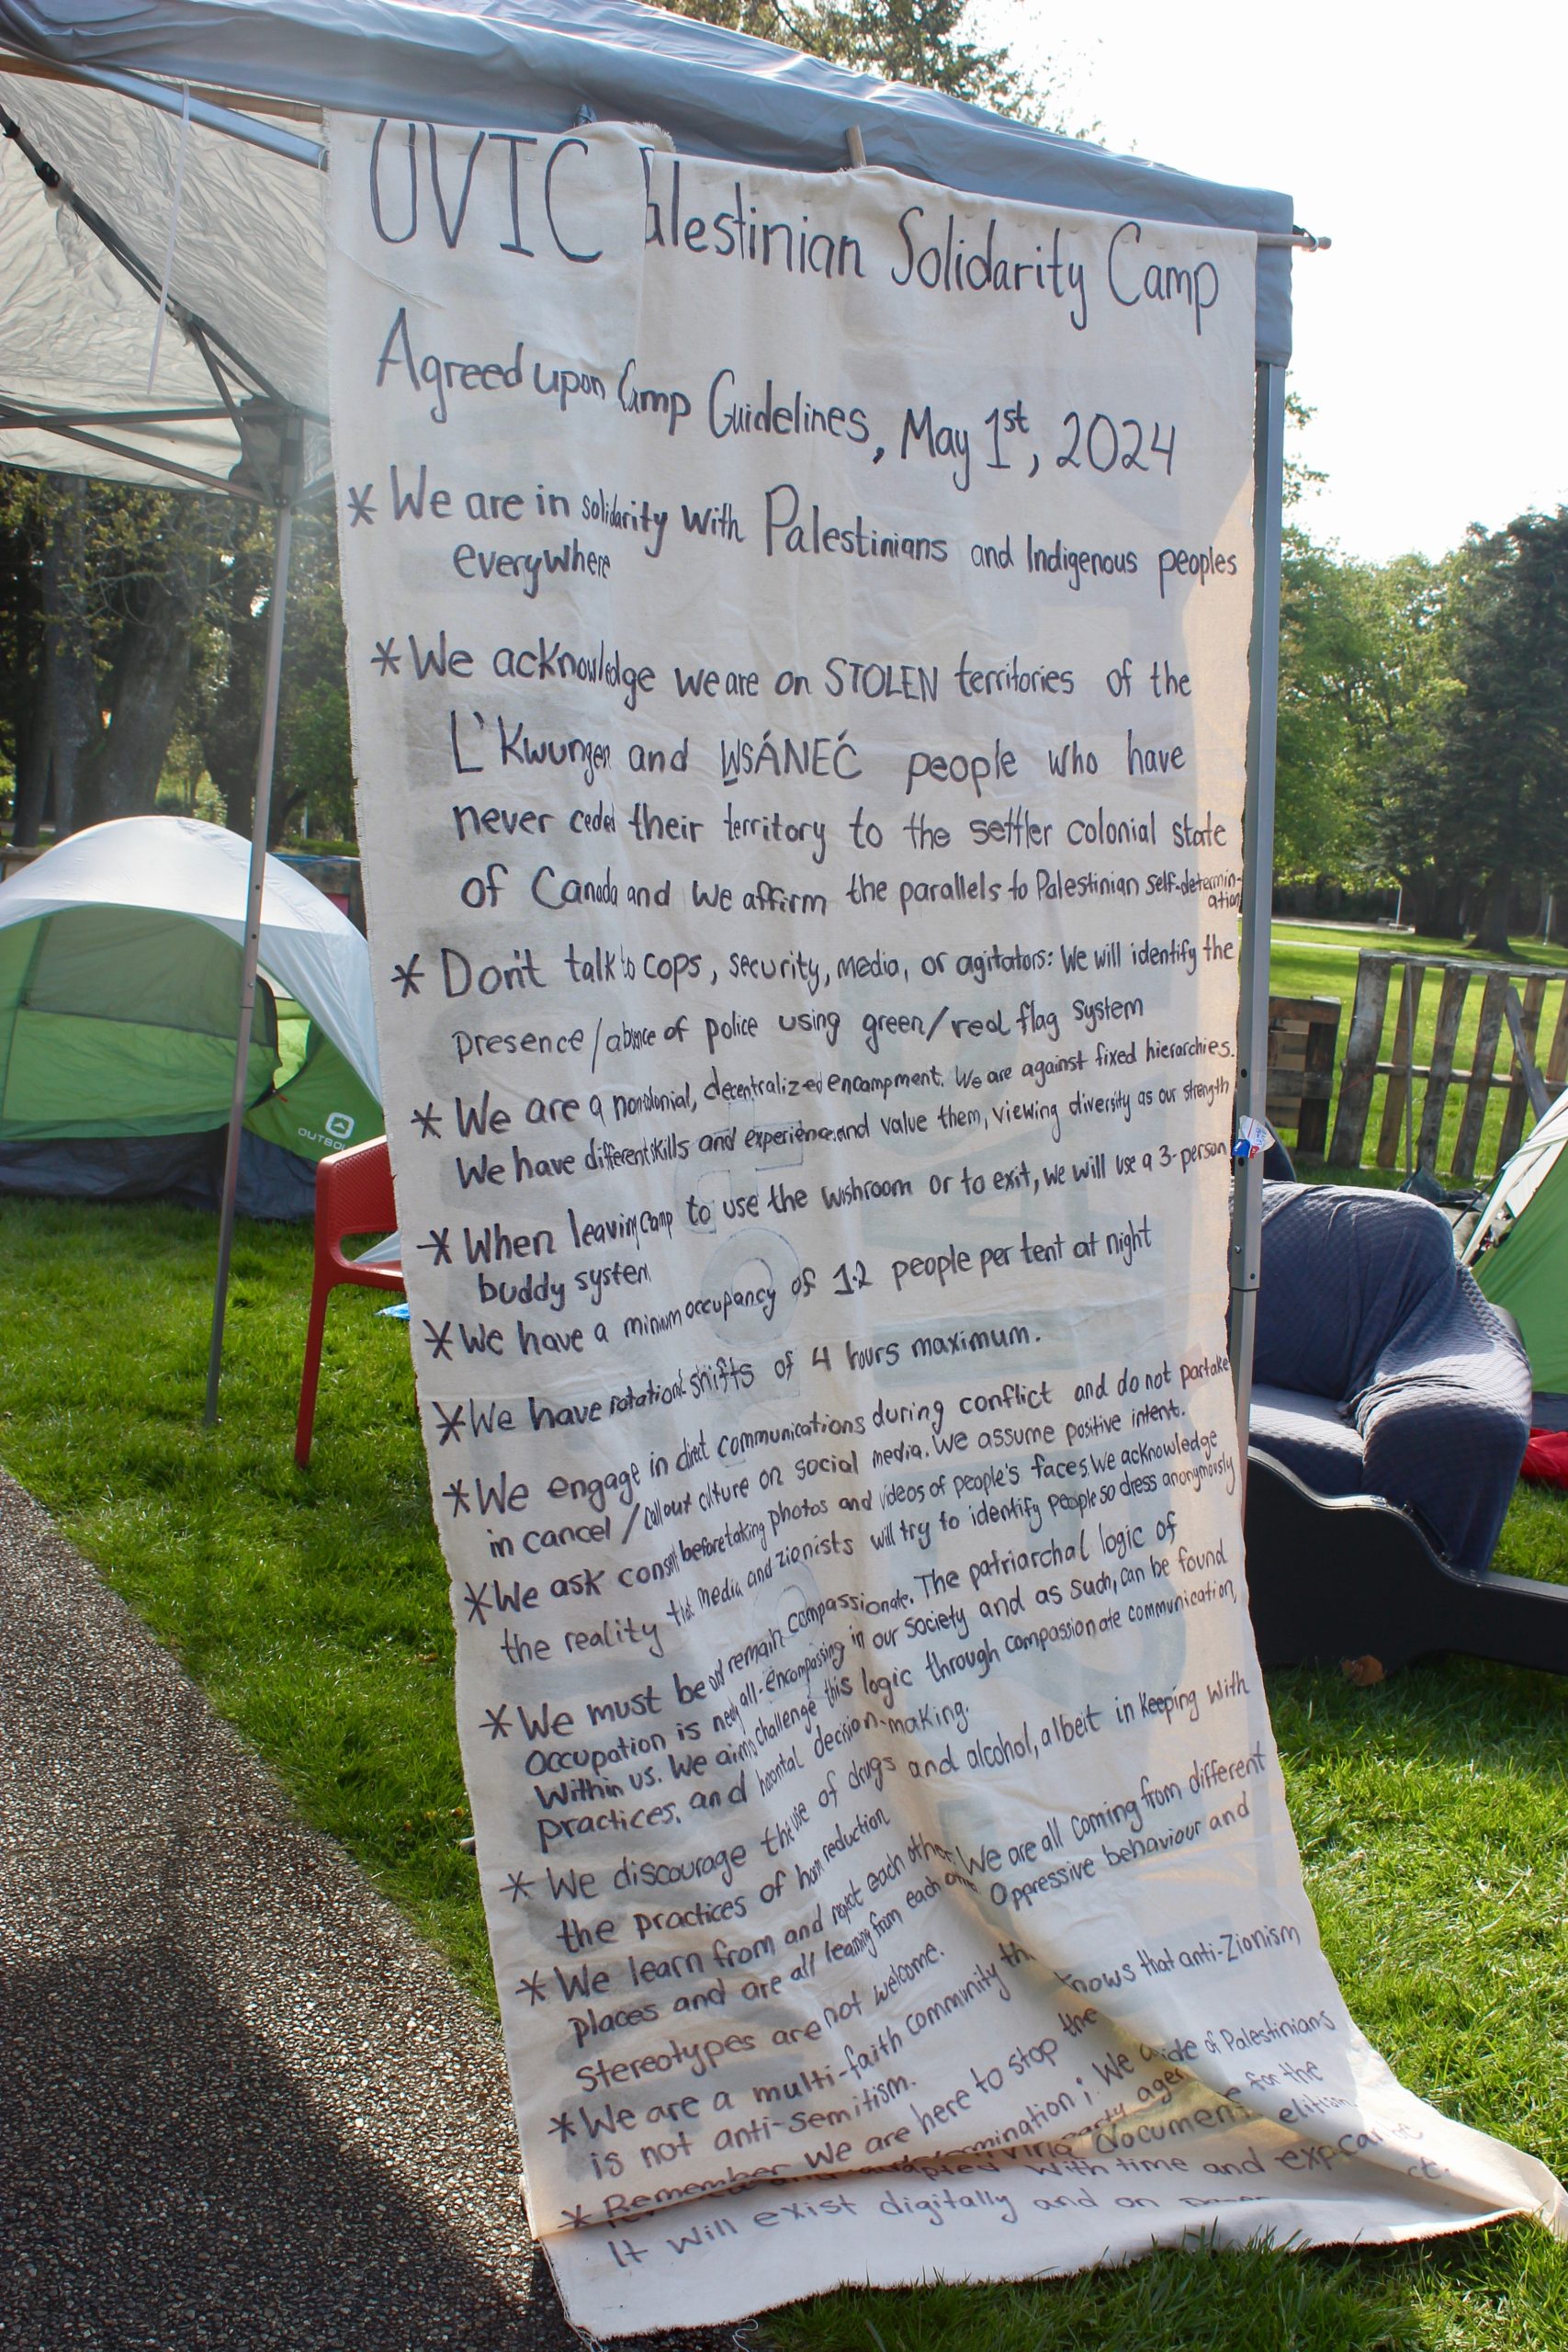 UVIC Palestinian Solidarity Camp
Agreed upon Camp Guidelines, May 1st, 2024
* We are in solidarity with Palestinians and Indigenous peoples
everywhere
* We acknowledge we are on STOLEN territories of the
L'Kwungen and W̱SÁNEĆ people who have
never ceded their territory to the settler colonial state
of Canada and we affirm the parallels to Palestinian self-determin-
ation
* Don't talk to cops, security, media, or agitators: We will identify the
presence/absence of police using green/red flag system
* We are a noncolonial, decentralized encampment. We are against fixed hierarchies.
We have different skills and experience and value them, viewing diversity as our strength
* When leaving camp to use the washroom or to exit, we will use a 3-person
buddy system
* We have a minimum occupancy of 1-2 people per tent at night
* We have rotational shifts of 4 hours maximum.
* We engage in direct communications during conflict and do not partake
in cancel/callout culture on social media. We assume positive intent.
* We ask consent before taking photos and videos of people's faces. We acknowledge
the reality that media and zionists will try to identify people so dress anonymously
* We must be and remain compassionate. The patriarchal logic of
occupation is nearly all-encompassing in our society and as such, can be found
within us. We aim to challenge this logic through compassionate communication,
practices, and horizontal decision-making.
* We discourage the use of drugs and alcohol, albeit in keeping with
the practices of harm reduction
* We learn from and respect each other. We are all coming from different
places and are all learning from each other. Oppressive behaviour and
stereotypes are not welcome.
* We are a multi-faith community that knows that anti-Zionism
is not anti-semitism.
* Remember We are here to stop the
of Palestinians
We
document for the
adapted with time and
It will exist digitally and on
OUTBOU